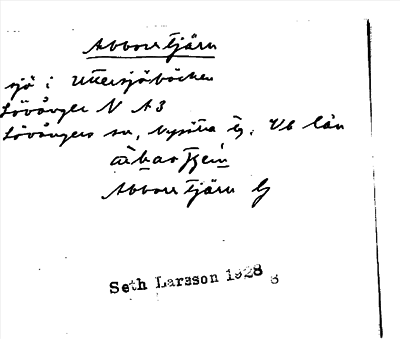 Abborrtjärn
sjö i Uttersjöbäcken
Lövånger N A3
Lövångers sn, Nysätra tg, Vb län
Abborrtjärn G
Seth Larsson 1928 8